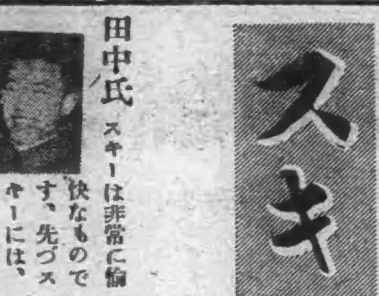 スキ
田中氏 スキーは非常に愉
快なもので
す、先づス
キーには、